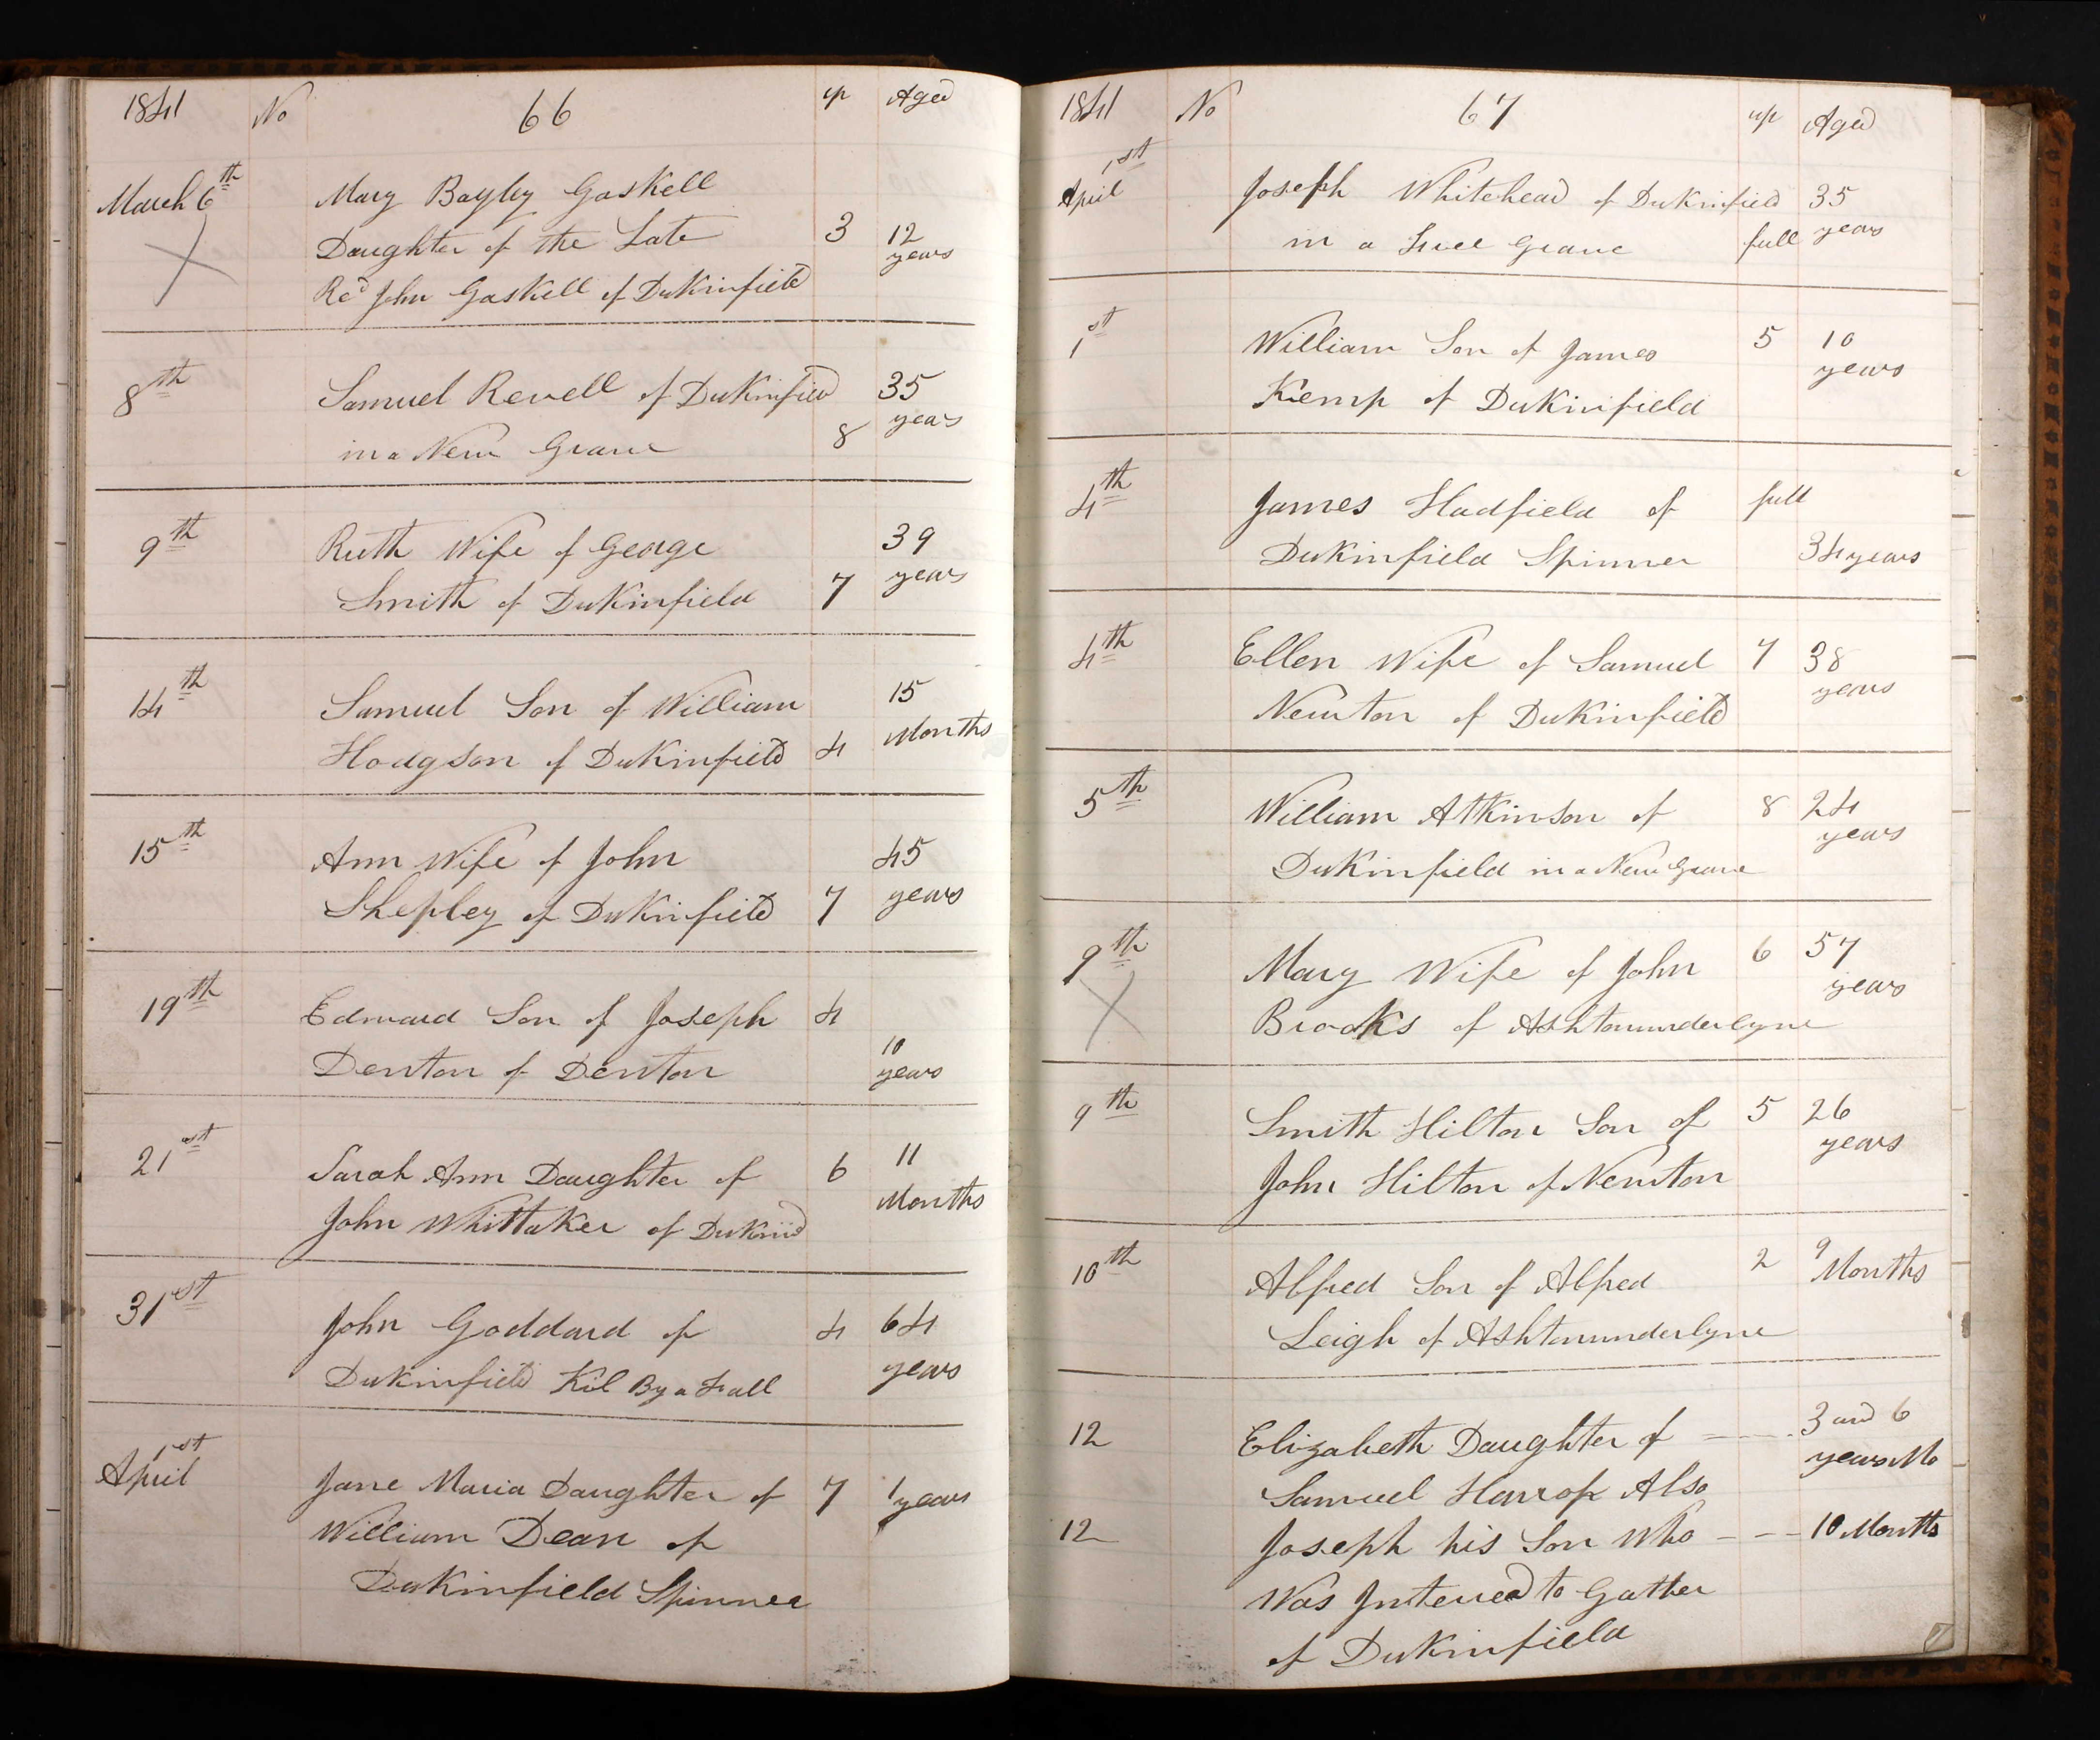 1841 No 66 up Aged
March 6th Mary Bayley Gaskell
Daughter of the Late 3 12 years
Red John Gaskell of Dukinfield
8th Samuel Revell of Dukinfied 35 years
in a New Grave 8
9th Ruth Wife of George 39 years
Smith of Dukinfield 7
14th Samuel Son of William 15
Hodgson of Dukinfield 4 Months
15th Ann Wife of John 45
Shepley of Dukinfield 7 years
19th Edward Son of Joseph 4
Denton of Denton 10 years
21st Sarah Ann Daughter of 6 11
John Whittaker of Dukind Months
31st John Goddard of 4 64
Dukinfield Kil By a Fall years
April 1st Jane Maria Daughter of 7 1 years
William Dean of
Dukinfield Spinner
1841 No 67 up Aged
April 1st Joseph Whitehead of Dukinfield 35
in a Free Grave full years
1st William Son of James 5 10
Kemp of Dukinfield years
4th James Hadfield of full
Dukinfield Spinner 34 years
4th Ellen Wife of Samuel 7 38
Newton of Dukinfield years
5th William Atkinson of 8 24
Dukinfield in a New Grave years
9th Mary Wife of John 6 57
Brooks of Ashtonunderlyne years
9th Smith Hilton Son of 5 26
John Hilton of Newton years
10th Alfred Son of Alfred 2 9 Months
Leigh of Ashtonunderlyne
12 Elizabeth Daughter of 3 and 6
Samuel Harrop Also years Mo
12 Joseph his Son Who 10 Months
Was Intered to Gather
of Dukinfield